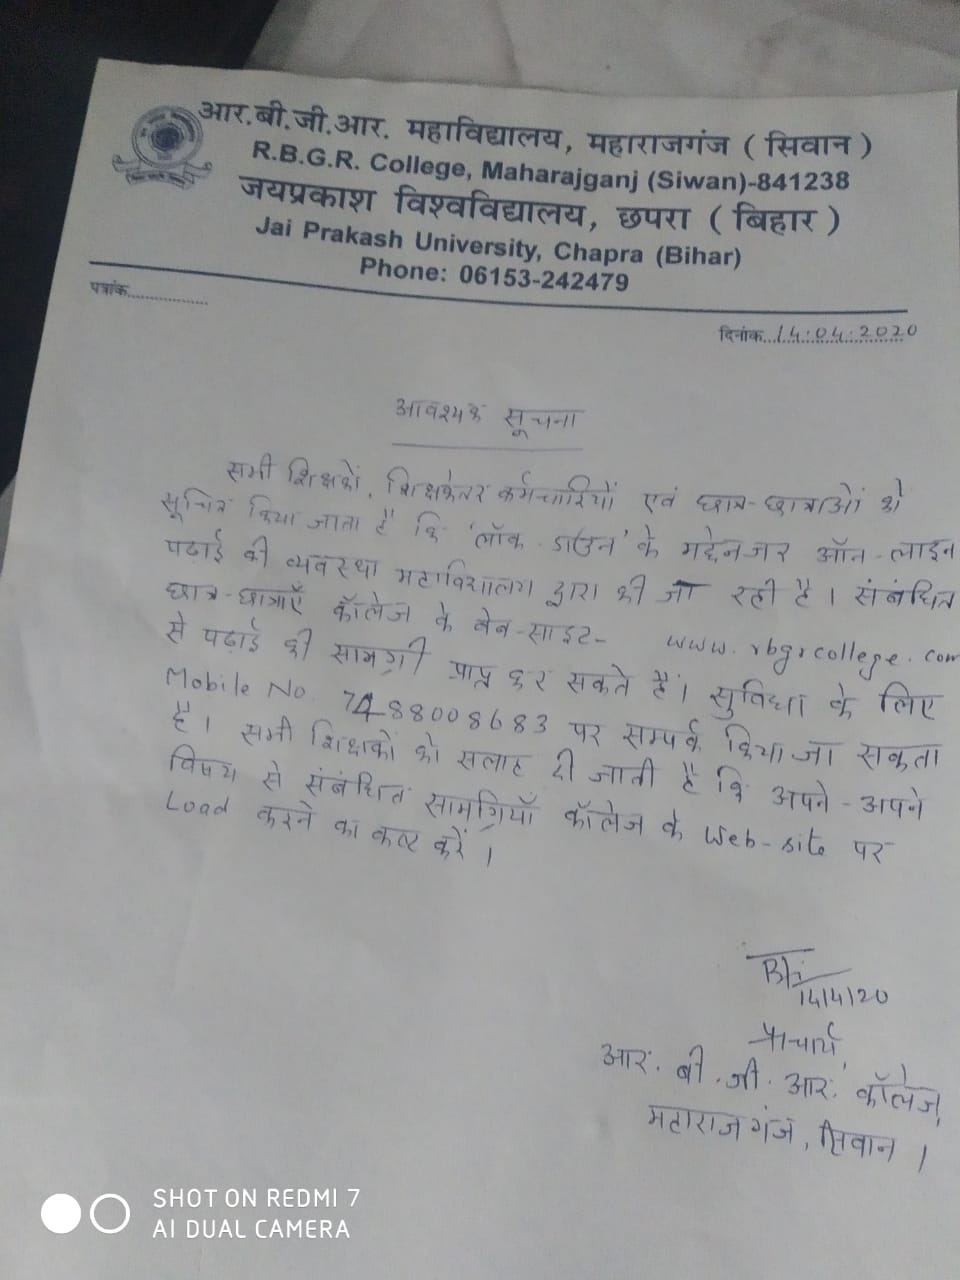 आर.बी.जी.आर. महाविद्यालय, महाराजगंज ( सिवान )
R.B.G.R. College, Maharajganj (Siwan)-841238
जयप्रकाश विश्वविद्यालय, छपरा ( बिहार )
Jai Prakash University, Chapra (Bihar)
Phone: 06153-242479
पत्रांक....................
दिनांक...14.04.2020
आवश्यक सूचना
सभी शिक्षकों, शिक्षकेतर कर्मचारियों एवं छात्र-छात्राओं को
सूचित किया जाता है कि 'लॉक डाउन' के मद्देनजर ऑन-लाइन
पढाई की व्यवस्था महाविद्यालय द्वारा की जा रही है। संबंधित
छात्र-छात्राएँ कॉलेज के वेब-साइट- www.rbgrcollege.com
से पढ़ाई की सामग्री प्राप्त कर सकते हैं। सुविधा के लिए
Mobile No. 7488008683 पर सम्पर्क किया जा सकता
है। सभी शिक्षकों को सलाह दी जाती है कि अपने-अपने
विषय से संबंधित सामग्रियाँ कॉलेज के Web-site पर
Load करने का कष्ट करें।
14/4/20
प्राचार्य,
आर. बी. जी. आर. कॉलेज,
महाराजगंज, सिवान।
SHOT ON REDMI 7
AI DUAL CAMERA